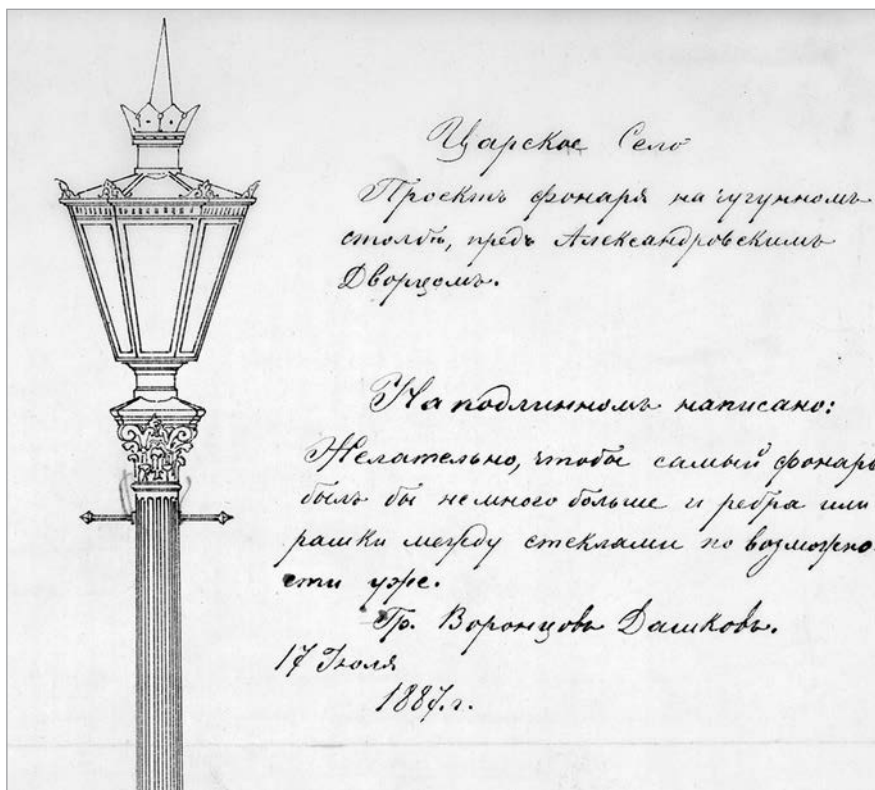 Царское Село
Проектъ фонаря на чугунномъ
столбѣ, предъ Александровскимъ
Дворцомъ.
На подлинномъ написано:
Желательно, чтобы самый фонарь
былъ бы немного больше и ребра или
рамки между стеклами по возможно-
сти уже.
Гр. Воронцовъ Дашковъ.
17 Июля
1887. г.